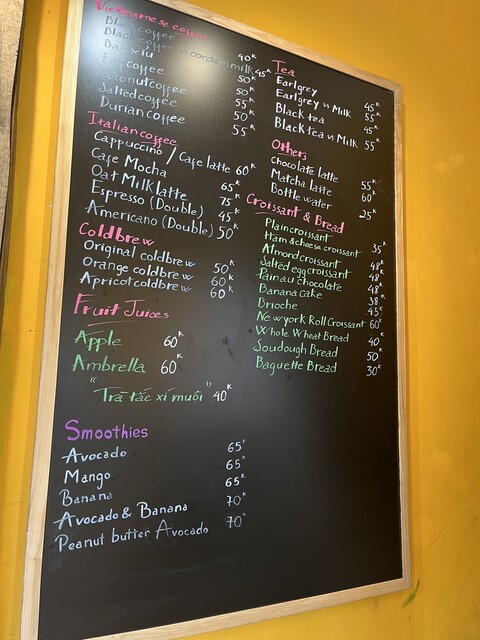 Vietnamese coffee
Black coffee 40K
Black coffee n condensmilk 45K
Bac xiu 50K
Egg coffee 50K
Coconut coffee 55K
Salted coffee 50K
Durian coffee 55K
Italian coffee
Cappuccino / Cafe latte 60K
Cafe Mocha 65K
Oat Milk latte 75K
Espresso (Double) 45K
Americano (Double) 50K
Coldbrew
Original coldbrew 50K
Orange coldbrew 60K
Apricot coldbrew 60K
Fruit Juices
Apple 60K
Ambrella 60K
"Trà tắc xí muội" 40K
Smoothies
Avocado 65K
Mango 65K
Banana 65K
Avocado & Banana 70K
Peanut butter Avocado 70K
Tea
Earlgrey 45K
Earlgrey n Milk 55K
Black tea 45K
Black tea n Milk 55K
Others
Chocolate latte 55K
Matcha latte 60K
Bottle water 25K
Croissant & Bread
Plain croissant
Ham & cheese croissant 35K
Almond croissant 48K
Salted egg croissant 48K
Pain au chocolate 48K
Banana cake 38K
Brioche 45K
Newyork Roll Croissant 60K
Whole Wheat Bread 40K
Soudough Bread 50K
Baguette Bread 30K